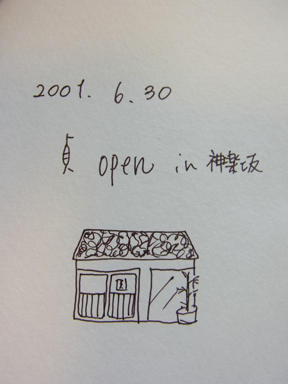 2001. 6. 30
貞 open in 神楽坂